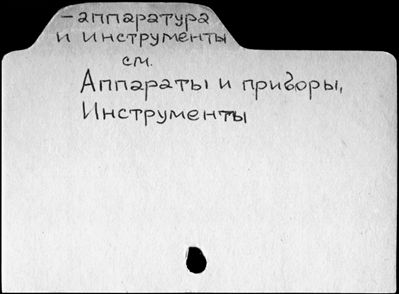 -аппаратура
и инструменты
см.
Аппараты и приборы,
Инструменты